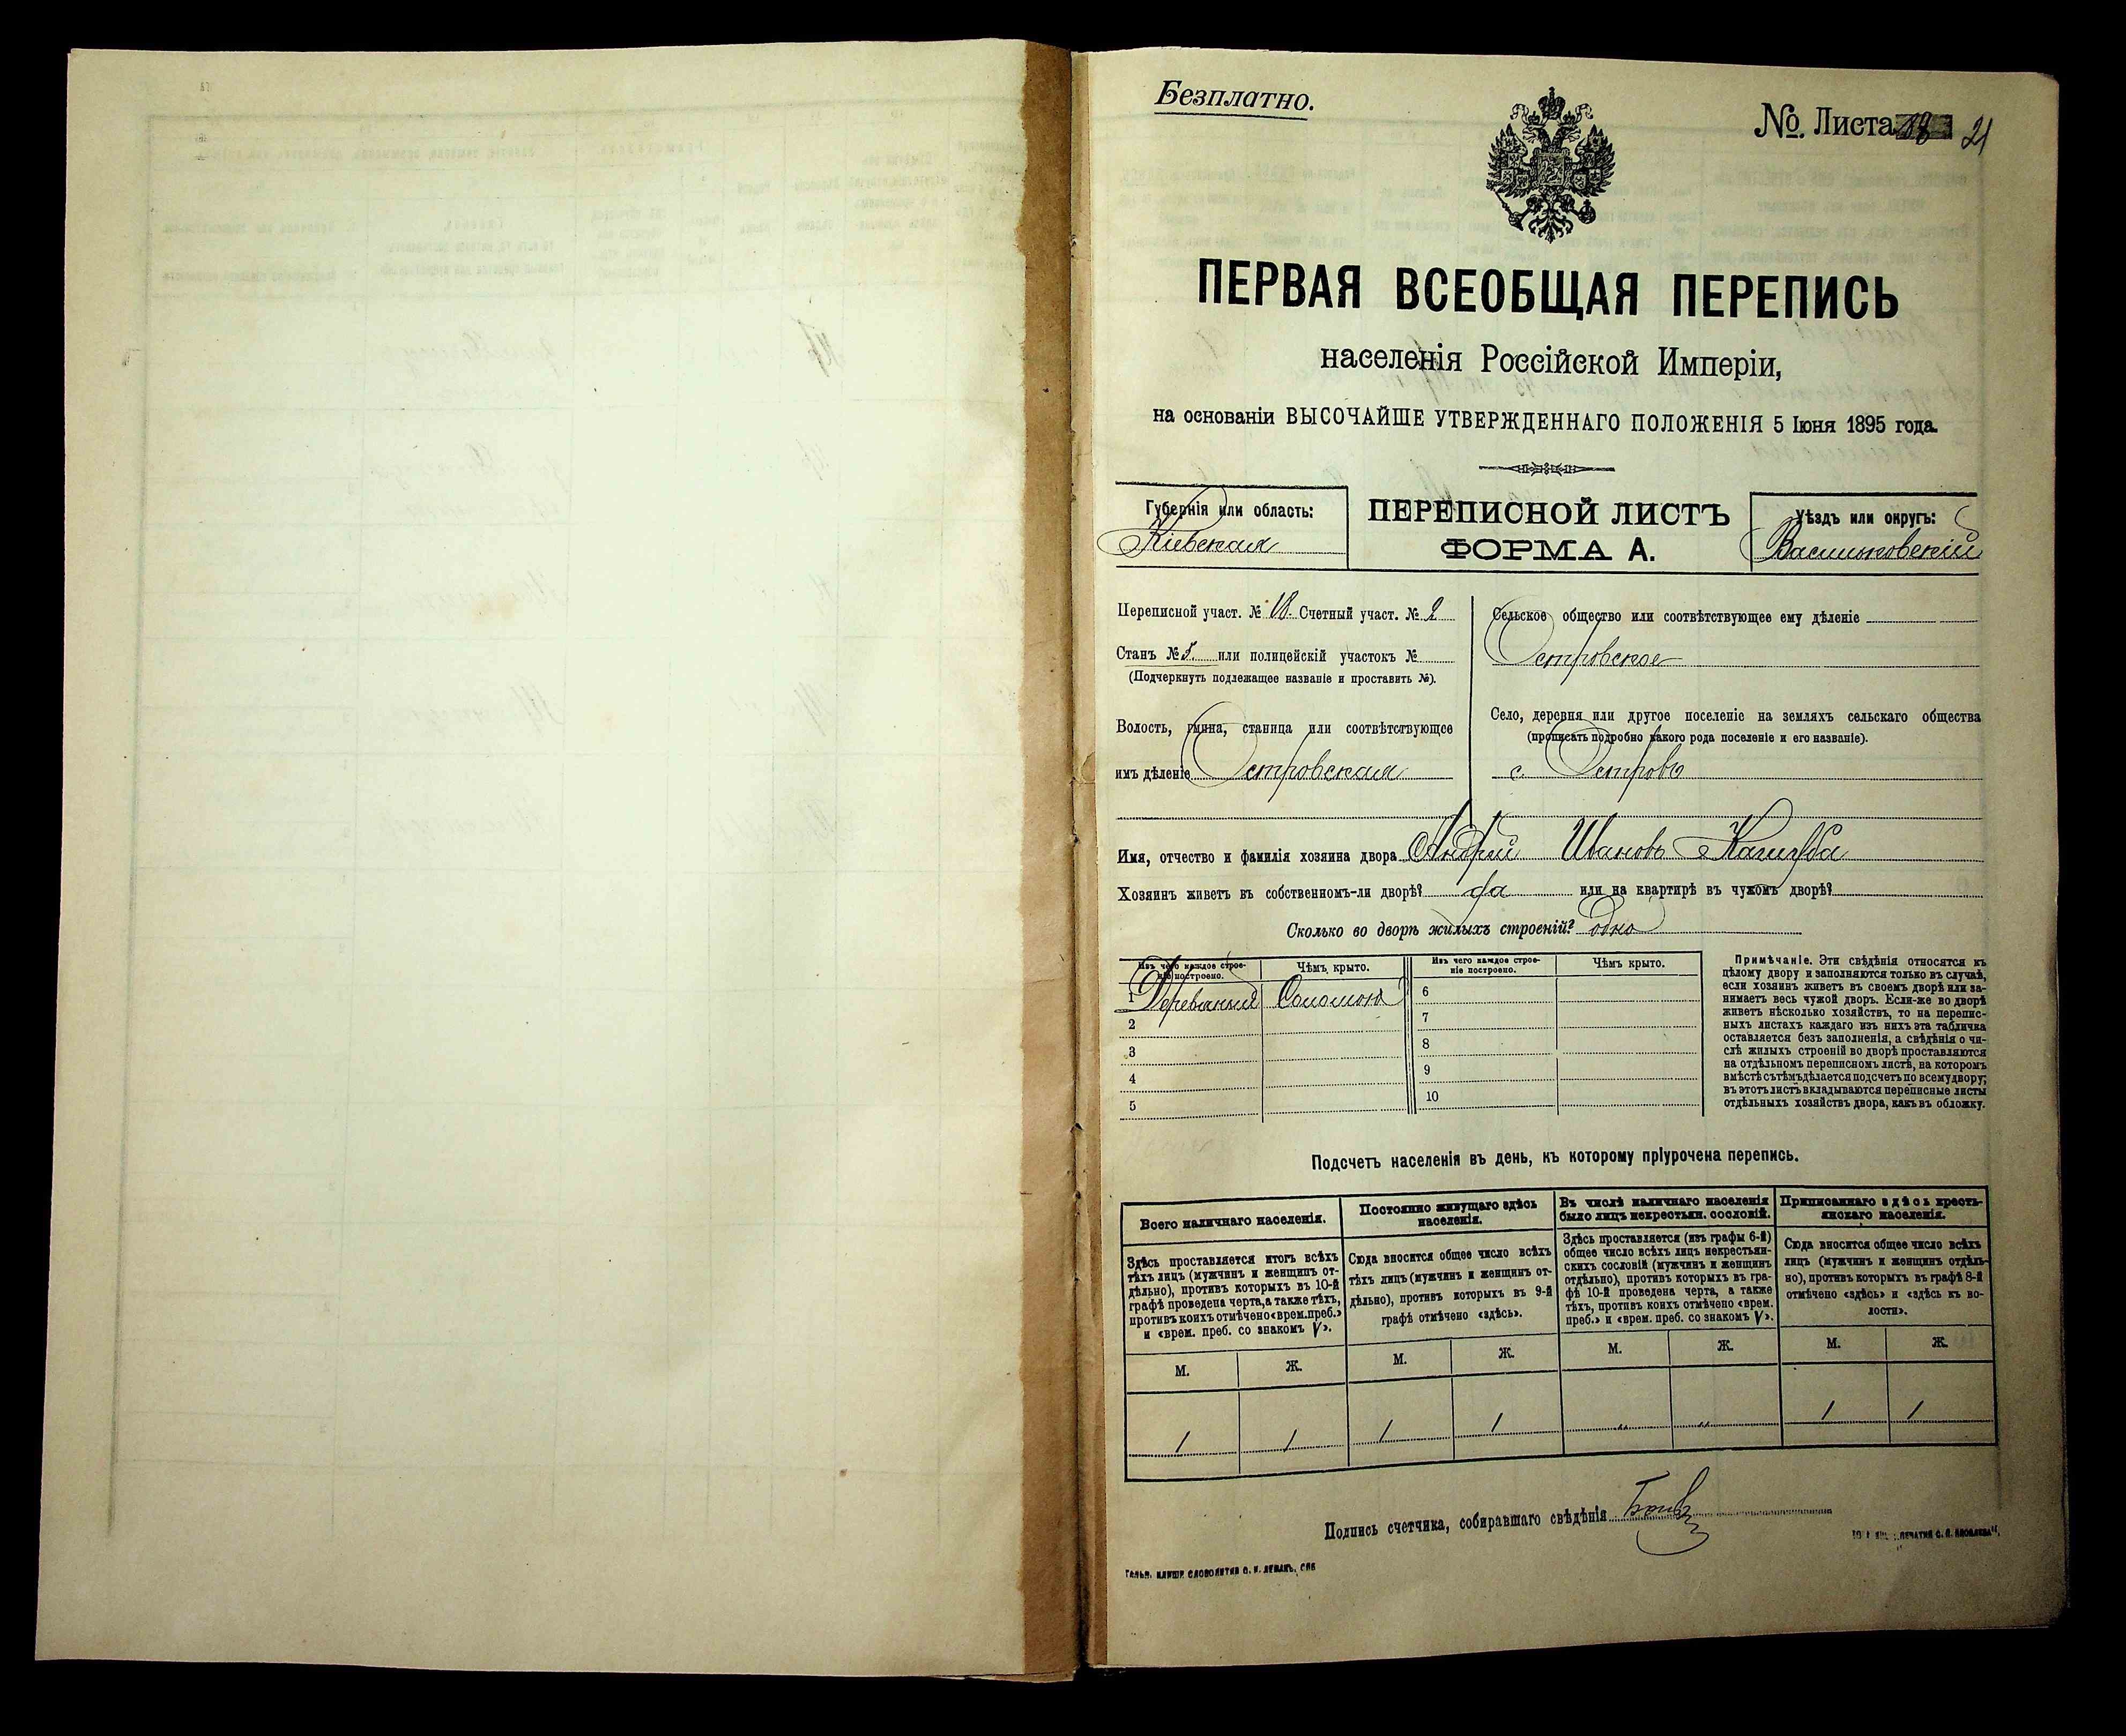 Безплатно.
№ Листа 21
ПЕРВАЯ ВСЕОБЩАЯ ПЕРЕПИСЬ
населенія Россійской Имперіи,
на основаніи ВЫСОЧАЙШЕ УТВЕРЖДЕННАГО ПОЛОЖЕНІЯ 5 Іюня 1895 года.
Губернія или область:
Кіевская
ПЕРЕПИСНОЙ ЛИСТЪ
ФОРМА А.
Уѣздъ или округъ:
Васильковскій
Переписной участ. № 18. Счетный участ. № 2
Станъ № 5. или полицейскій участокъ №
(Подчеркнуть подлежащее названіе и проставить №).
Волость, гмина, станица или соотвѣтствующее
имъ дѣленіе Островская
Сельское общество или соотвѣтствующее ему дѣленіе
Островское
Село, деревня или другое поселеніе на земляхъ сельскаго общества
(прописать подробно какого рода поселеніе и его названіе).
с. Островъ
Имя, отчество и фамилія хозяина двора Андрей Ивановъ
Хозяинъ живетъ въ собственномъ-ли дворѣ? да или на квартирѣ въ чужомъ дворѣ?
Сколько во дворѣ жилыхъ строеній? одно
Изъ чего каждое строе-
ніе построено.
Чѣмъ крыто.
Изъ чего каждое строе-
ніе построено.
Чѣмъ крыто.
1 Деревяный Соломою 6
2 7
3 8
4 9
5 10
Примѣчаніе. Эти свѣдѣнія относятся къ
цѣлому двору и заполняются только въ случаѣ,
если хозяинъ живетъ въ своемъ дворѣ или за-
нимаетъ весь чужой дворъ. Если-же во дворѣ
живетъ нѣсколько хозяйствъ, то на перепис-
ныхъ листахъ каждаго изъ нихъ эта табличка
оставляется безъ заполненія, а свѣдѣнія о чи-
слѣ жилыхъ строеній во дворѣ проставляются
на отдѣльномъ переписномъ листѣ, на которомъ
вмѣстѣ съ тѣмъ дѣлается подсчетъ по всему двору;
въ этотъ листъ вкладываются переписные листы
отдѣльныхъ хозяйствъ двора, какъ въ обложку.
Подсчетъ населенія въ день, къ которому пріурочена перепись.
Всего наличнаго населенія.
Постоянно живущаго здѣсь
населенія.
Въ числѣ наличнаго населенія
было лицъ некрестьян. сословій.
Приписаннаго здѣсь кресть-
янскаго населенія.
Здѣсь проставляется итогъ всѣхъ
тѣхъ лицъ (мужчинъ и женщинъ от-
дѣльно), противъ которыхъ въ 10-й
графѣ проведена черта, а также тѣхъ,
противъ коихъ отмѣчено «врем. преб.»
и «врем. преб. со знакомъ V».
Сюда вносится общее число всѣхъ
тѣхъ лицъ (мужчинъ и женщинъ от-
дѣльно), противъ которыхъ въ 9-й
графѣ отмѣчено «здѣсь».
Здѣсь проставляется (изъ графы 6-й)
общее число всѣхъ лицъ некрестьян-
скихъ сословій (мужчинъ и женщинъ
отдѣльно), противъ которыхъ въ гра-
фѣ 10-й проведена черта, а также
тѣхъ, противъ коихъ отмѣчено «врем.
преб.» и «врем. преб. со знакомъ V».
Сюда вносится общее число всѣхъ
лицъ (мужчинъ и женщинъ отдѣль-
но), противъ которыхъ въ графѣ 8-й
отмѣчено «здѣсь» и «здѣсь къ во-
лости».
М. Ж. М. Ж. М. Ж. М. Ж.
1 1 1 1 " " 1 1
Подпись счетчика, собиравшаго свѣдѣнія